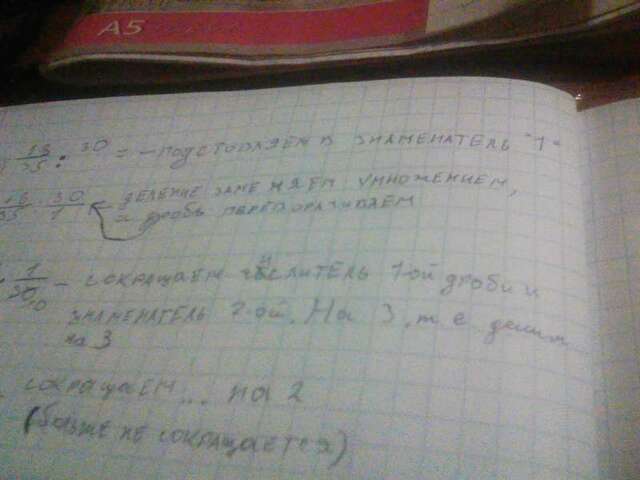 A5
: 30 = - подстовляем в знаменатель "1"
30/1 деление заменяем умножением,
а дробь переворачиваем
1/30 10 - сокращаем числитель 1-ой дроби и
знаменатель 2-ой. На 3, т.е делим
на 3
сокращаем... на 2
(больже не сокращается)